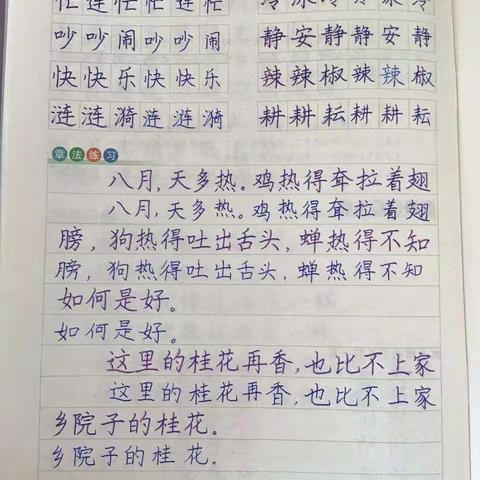 忙连忙忙连忙 冷冰冷冷冰冷
吵吵闹吵吵闹 静安静静安静
快快乐快快乐 辣辣椒辣辣椒
涟涟漪涟涟漪 耕耕耘耕耕耘
章法练习
八月,天多热。鸡热得耷拉着翅
八月,天多热。鸡热得耷拉着翅
膀,狗热得吐出舌头,蝉热得不知
膀,狗热得吐出舌头,蝉热得不知
如何是好。
如何是好。
这里的桂花再香,也比不上家
这里的桂花再香,也比不上家
乡院子的桂花。
乡院子的桂花。